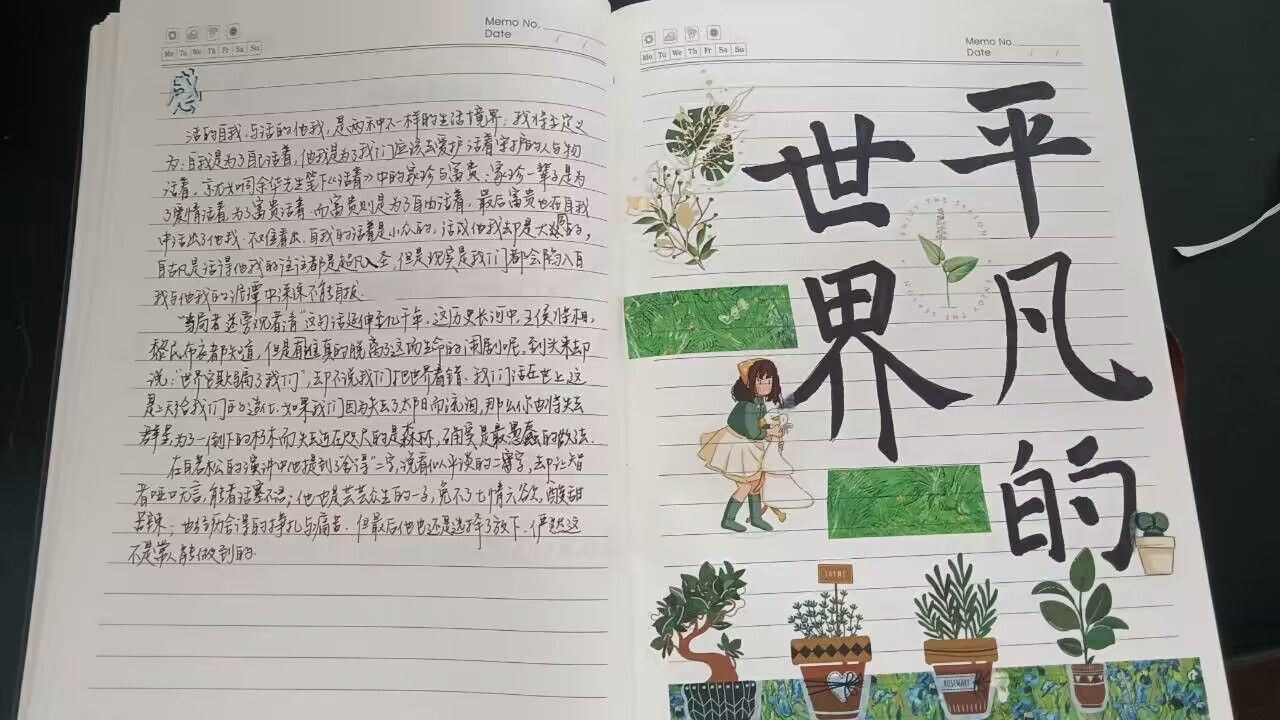 Memo No.
Date
Mo Tu We Th Fr Sa Su
感
活的自我,与活的他我,是两种不一样的生活境界;我将其定义
为:自我是为了自己活着,他我是为了我们应该去爱护活着守护的人与物
活着,就如同余华先生笔下《活着》中的家珍与富贵;家珍一辈子是为
了爱情活着,为了富贵活着,而富贵则是为了自由活着,最后富贵也在自我
中活出了他我,自我的活着是小众的,活成他我却是大
活得他我的往往都是超凡入圣,但是现实是我们都会陷入自
我与他我的泥潭中深深不能自拔.
“当局者迷旁观者清”这句话延伸至几千年,这历史长河中,王侯将相,
黎民布衣都知道,但是有谁真的脱离了这场生命的闹剧呢,到头来却
说:“世界欺骗了我们”,却不说我们把世界看错.我们活在世上这
是上天给我们的造化.如果我们因为失去了太阳而流泪,那么你也将失去
群星为了一倒下的朽木而失去近在咫尺的是森林,确实是最愚蠢的做法.
在白岩松的演讲中他提到“舍得”二字,说看似平淡的二字,却让智
者哑口无言,能者话塞不忍;他也是芸芸众生的一子,免不了七情六欲,酸甜
苦辣;也会为舍得的挣扎与痛苦.但最后他也还是选择了放下.俨然这
不是常人能做到的.
Memo No.
Date
Mo Tu We Th Fr Sa Su
平凡的
世界
ENJOY THE SEASON
ENJOY THE SEASON
THYME
ROSEMARY